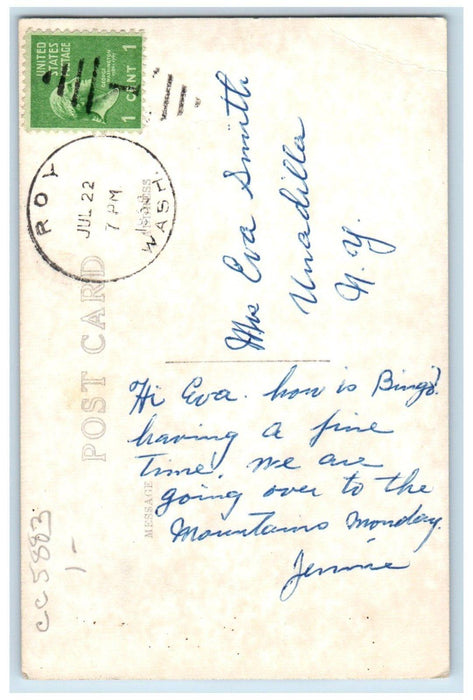 UNITED
STATES
POSTAGE
1 CENT 1
ROY
JUL 22
7 PM
WASH.
POST CARD
Mrs Eva Smith
Unadilla
N. Y.
MESSAGE
Hi Eva. how is Bingo?
having a fine
time! We are
going over to the
Mountains Monday.
Jennie
CC5883
1-